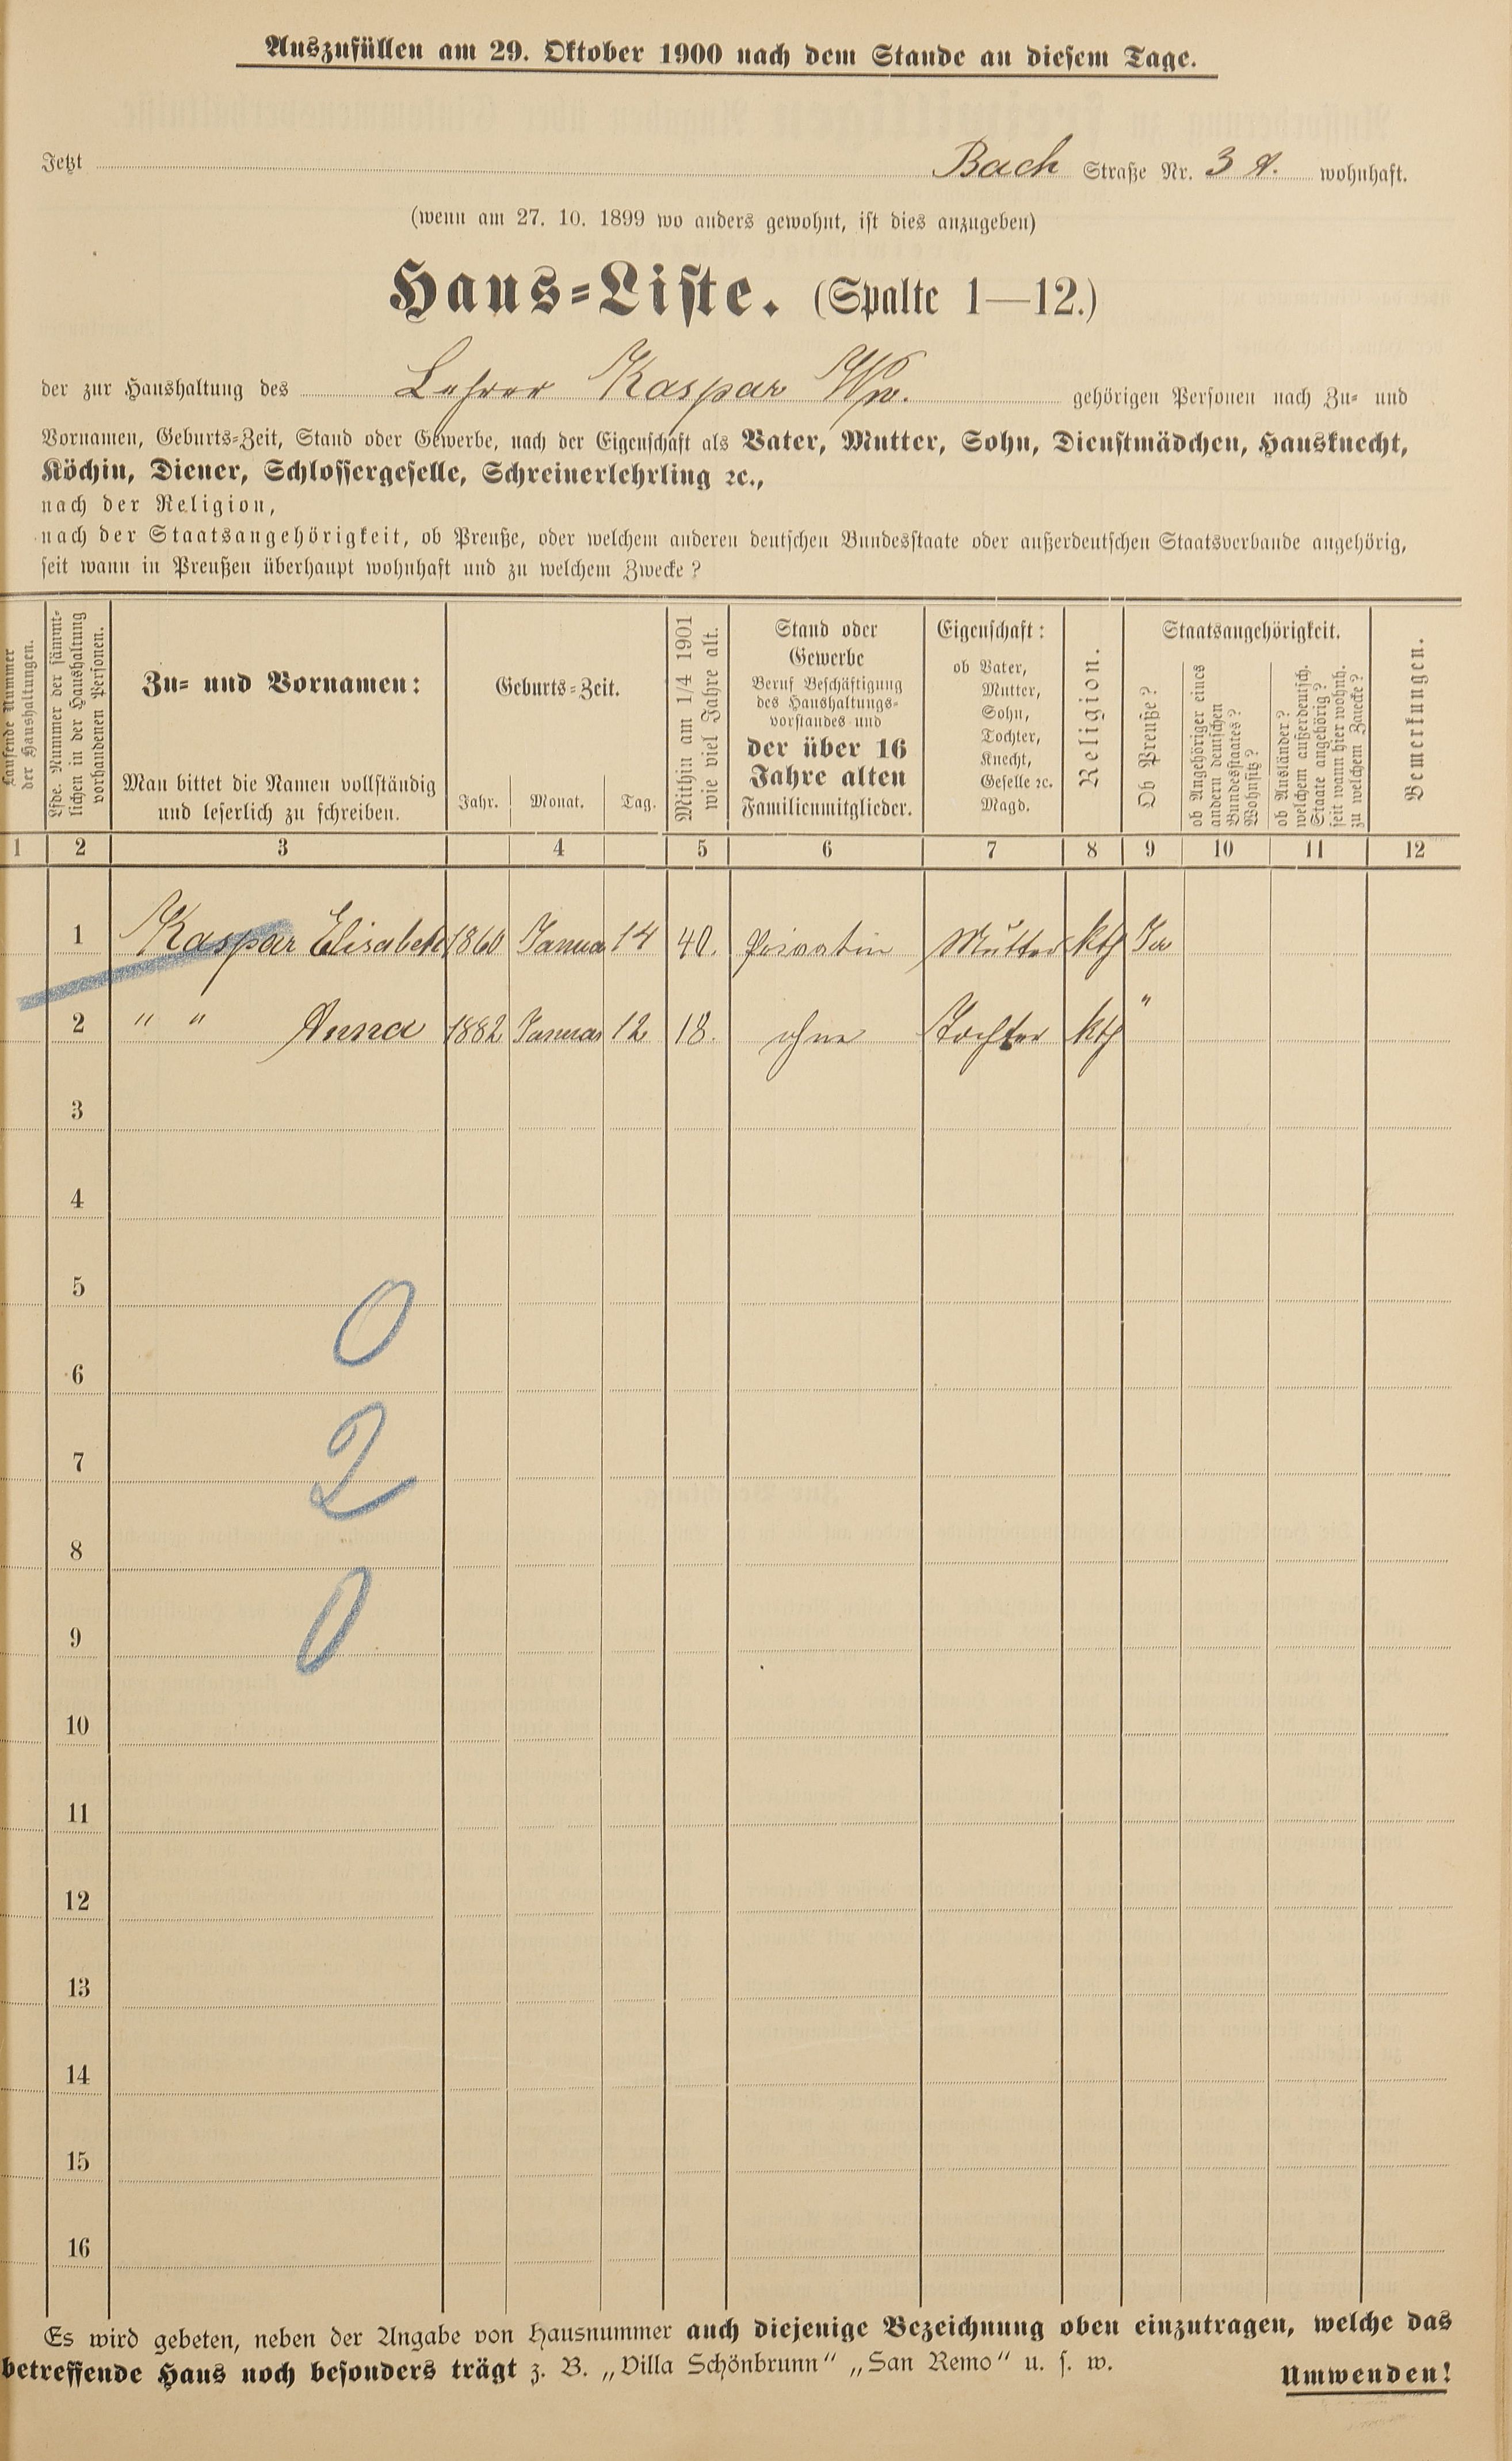 Auszufüllen am 29. Oktober 1900 nach dem Stande an diesem Tage.
Jetzt Bach Straße Nr. 3 a. wohnhaft.
(wenn am 27. 10. 1899 wo anders gewohnt, ist dies anzugeben)
Haus-Liste. (Spalte 1—12.)
der zur Haushaltung des Lehrer Kaspar Ww. gehörigen Personen nach Zu- und
Vornamen, Geburts-Zeit, Stand oder Gewerbe, nach der Eigenschaft als Vater, Mutter, Sohn, Dienstmädchen, Hausknecht,
Köchin, Diener, Schlossergeselle, Schreinerlehrling ꝛc.,
nach der Religion,
nach der Staatsangehörigkeit, ob Preuße, oder welchem anderen deutschen Bundesstaate oder außerdeutschen Staatsverbande angehörig,
seit wann in Preußen überhaupt wohnhaft und zu welchem Zwecke?
Laufende Nummer
der Haushaltungen.
Lfde. Nummer der sämmt-
lichen in der Haushaltung
vorhandenen Personen.
Zu- und Vornamen:
Man bittet die Namen vollständig
und leserlich zu schreiben.
Geburts-Zeit.
Jahr. Monat. Tag.
Mithin am 1/4 1901
wie viel Jahre alt.
Stand oder
Gewerbe
Beruf Beschäftigung
des Haushaltungs-
vorstandes und
der über 16
Jahre alten
Familienmitglieder.
Eigenschaft:
ob Vater,
Mutter,
Sohn,
Tochter,
Knecht,
Geselle ꝛc.
Magd.
Religion.
Staatsangehörigkeit.
Ob Preuße?
ob Angehöriger eines
andern deutschen
Bundesstaates?
Wohnsitz?
ob Ausländer?
welchem außerdeutsch.
Staate angehörig?
seit wann hier wohnh.
zu welchem Zwecke?
Bemerkungen.
1 2 3 4 5 6 7 8 9 10 11 12
1 Kaspar Elisabeth 1860 Januar 14 40. Privatin Mutter kth Ja
2 " " Anna 1882 Januar 12 18. ohne Tochter kth "
3
4
5
0
6
7 2
8
9 0
10
11
12
13
14
15
16
Es wird gebeten, neben der Angabe von Hausnummer auch diejenige Bezeichnung oben einzutragen, welche das
betreffende Haus noch besonders trägt z. B. „Villa Schönbrunn" „San Remo" u. s. w.
Umwenden!